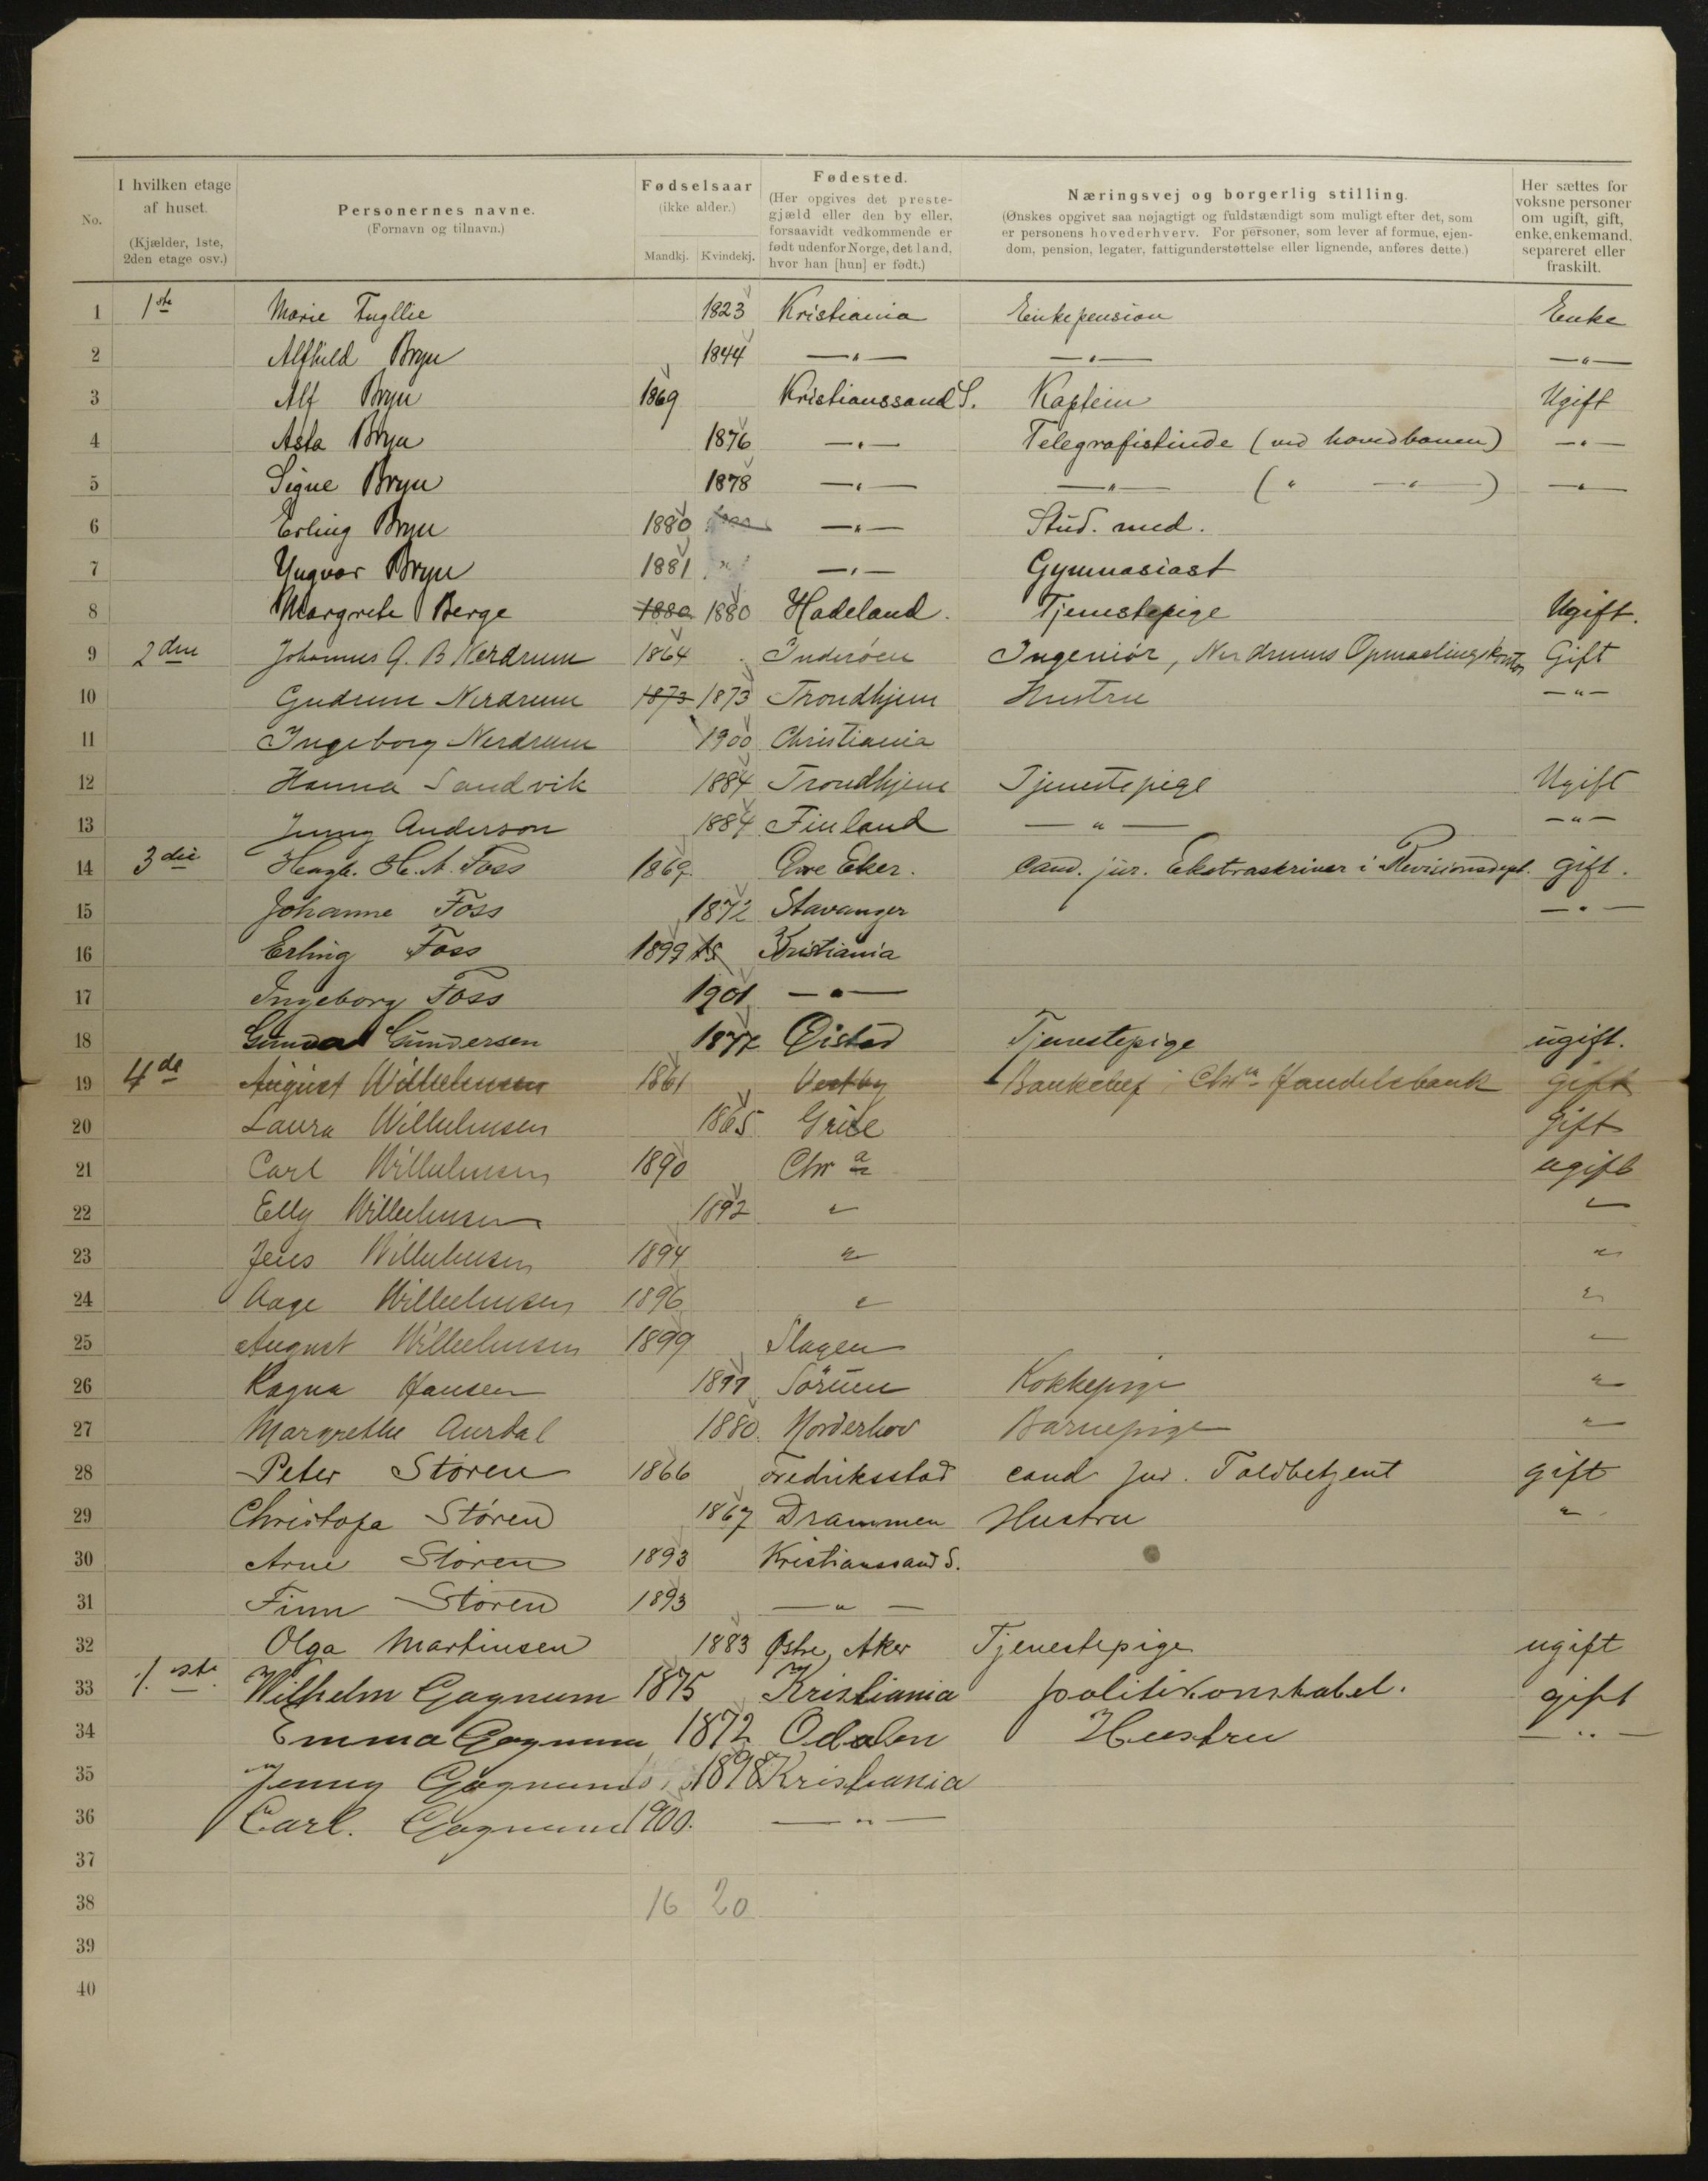 No.
I hvilken etage af huset. (Kjælder, 1ste, 2den etage osv.)
Personernes navne. (Fornavn og tilnavn.)
Fødselsaar (ikke alder.) Mandkj. Kvindekj.
Fødested. (Her opgives det prestegjæld eller den by eller, forsaavidt vedkommende er født udenfor Norge, det land, hvor han [hun] er født.)
Næringsvej og borgerlig stilling. (Ønskes opgivet saa nøjagtigt og fuldstændigt som muligt efter det, som er personens hovederhverv. For personer, som lever af formue, ejendom, pension, legater, fattigunderstøttelse eller lignende, anføres dette.)
Her sættes for voksne personer om ugift, gift, enke, enkemand, separeret eller fraskilt.
1 1ste Marie 1823 Kristiania Enkepension Enke
2 Alfhild Bryn 1844 —"— —"— —"—
3 Alf Bryn 1869 Kristianssand S. Kaptein Ugift
4 Asta Bryn 1876 —"— Telegrafistinde (ved hovedbanen) —"—
5 Signe Bryn 1878 —"— —"— (" —"—) —"—
6 Erling Bryn 1880 —"— Stud. med.
7 Yngvar Bryn 1881 " —"— Gymnasiast
8 Margrete Berge 1880 1880 Hadeland. Tjenestepige Ugift.
9 2den Johannes G. B Nerdrum 1864 Inderøen Ingeniør, Nerdrums Opmaalingskontor Gift
10 Gudrun Nerdrum 1873 1873 Trondhjem Hustru —"—
11 Ingeborg Nerdrum 1900 Christiania
12 Hanna Sandvik 1884 Trondhjem Tjenestepige Ugift
13 Jenny Anderson 1884 Finland —"— —"—
14 3die H. A. Foss 1869 Øvre Eker. Cand. jur. Ekstraskriver i Revisionsdept. gift.
15 Johanne Foss 1872 Stavanger —"—
16 Erling Foss 1899 Kristiania
17 Ingeborg Foss 1901 —"—
18 Gunda Gundersen 1877 Øistad Tjenestepige ugift.
19 4de August Wilhelmsen 1861 Vestby Bankchef i Chra Handelsbank gift
20 Laura Wilhelmsen 1865 Grue Gift
21 Carl Wilhelmsen 1890 Chra ugift
22 Elly Wilhelmsen 1892 " "
23 Jens Wilhelmsen 1894 " "
24 Aage Wilhelmsen 1896 " "
25 August Wilhelmsen 1899 Slagen "
26 Ragna Hansen 1877 Sørum Kokkepige "
27 Margrethe Aurdal 1880. Norderhov Barnepige "
28 Peter Støren 1866 Fredriksstad cand jur. Toldbetjent gift
29 Christofa Støren 1867 Drammen Hustru "
30 Arne Støren 1893 Kristianssand S.
31 Finn Støren 1893 —"—
32 Olga Martinsen 1883 Østre Aker Tjenestepige ugift
33 1ste Wilhelm Gagnum 1875 Kristiania politikonstabel. gift
34 Emma Gagnum 1872 Odalen Hustru —"—
35 Jenny Gagnum 1898 Kristiania
36 Carl. Gagnum 1900. —"—
37
38 16 20
39
40